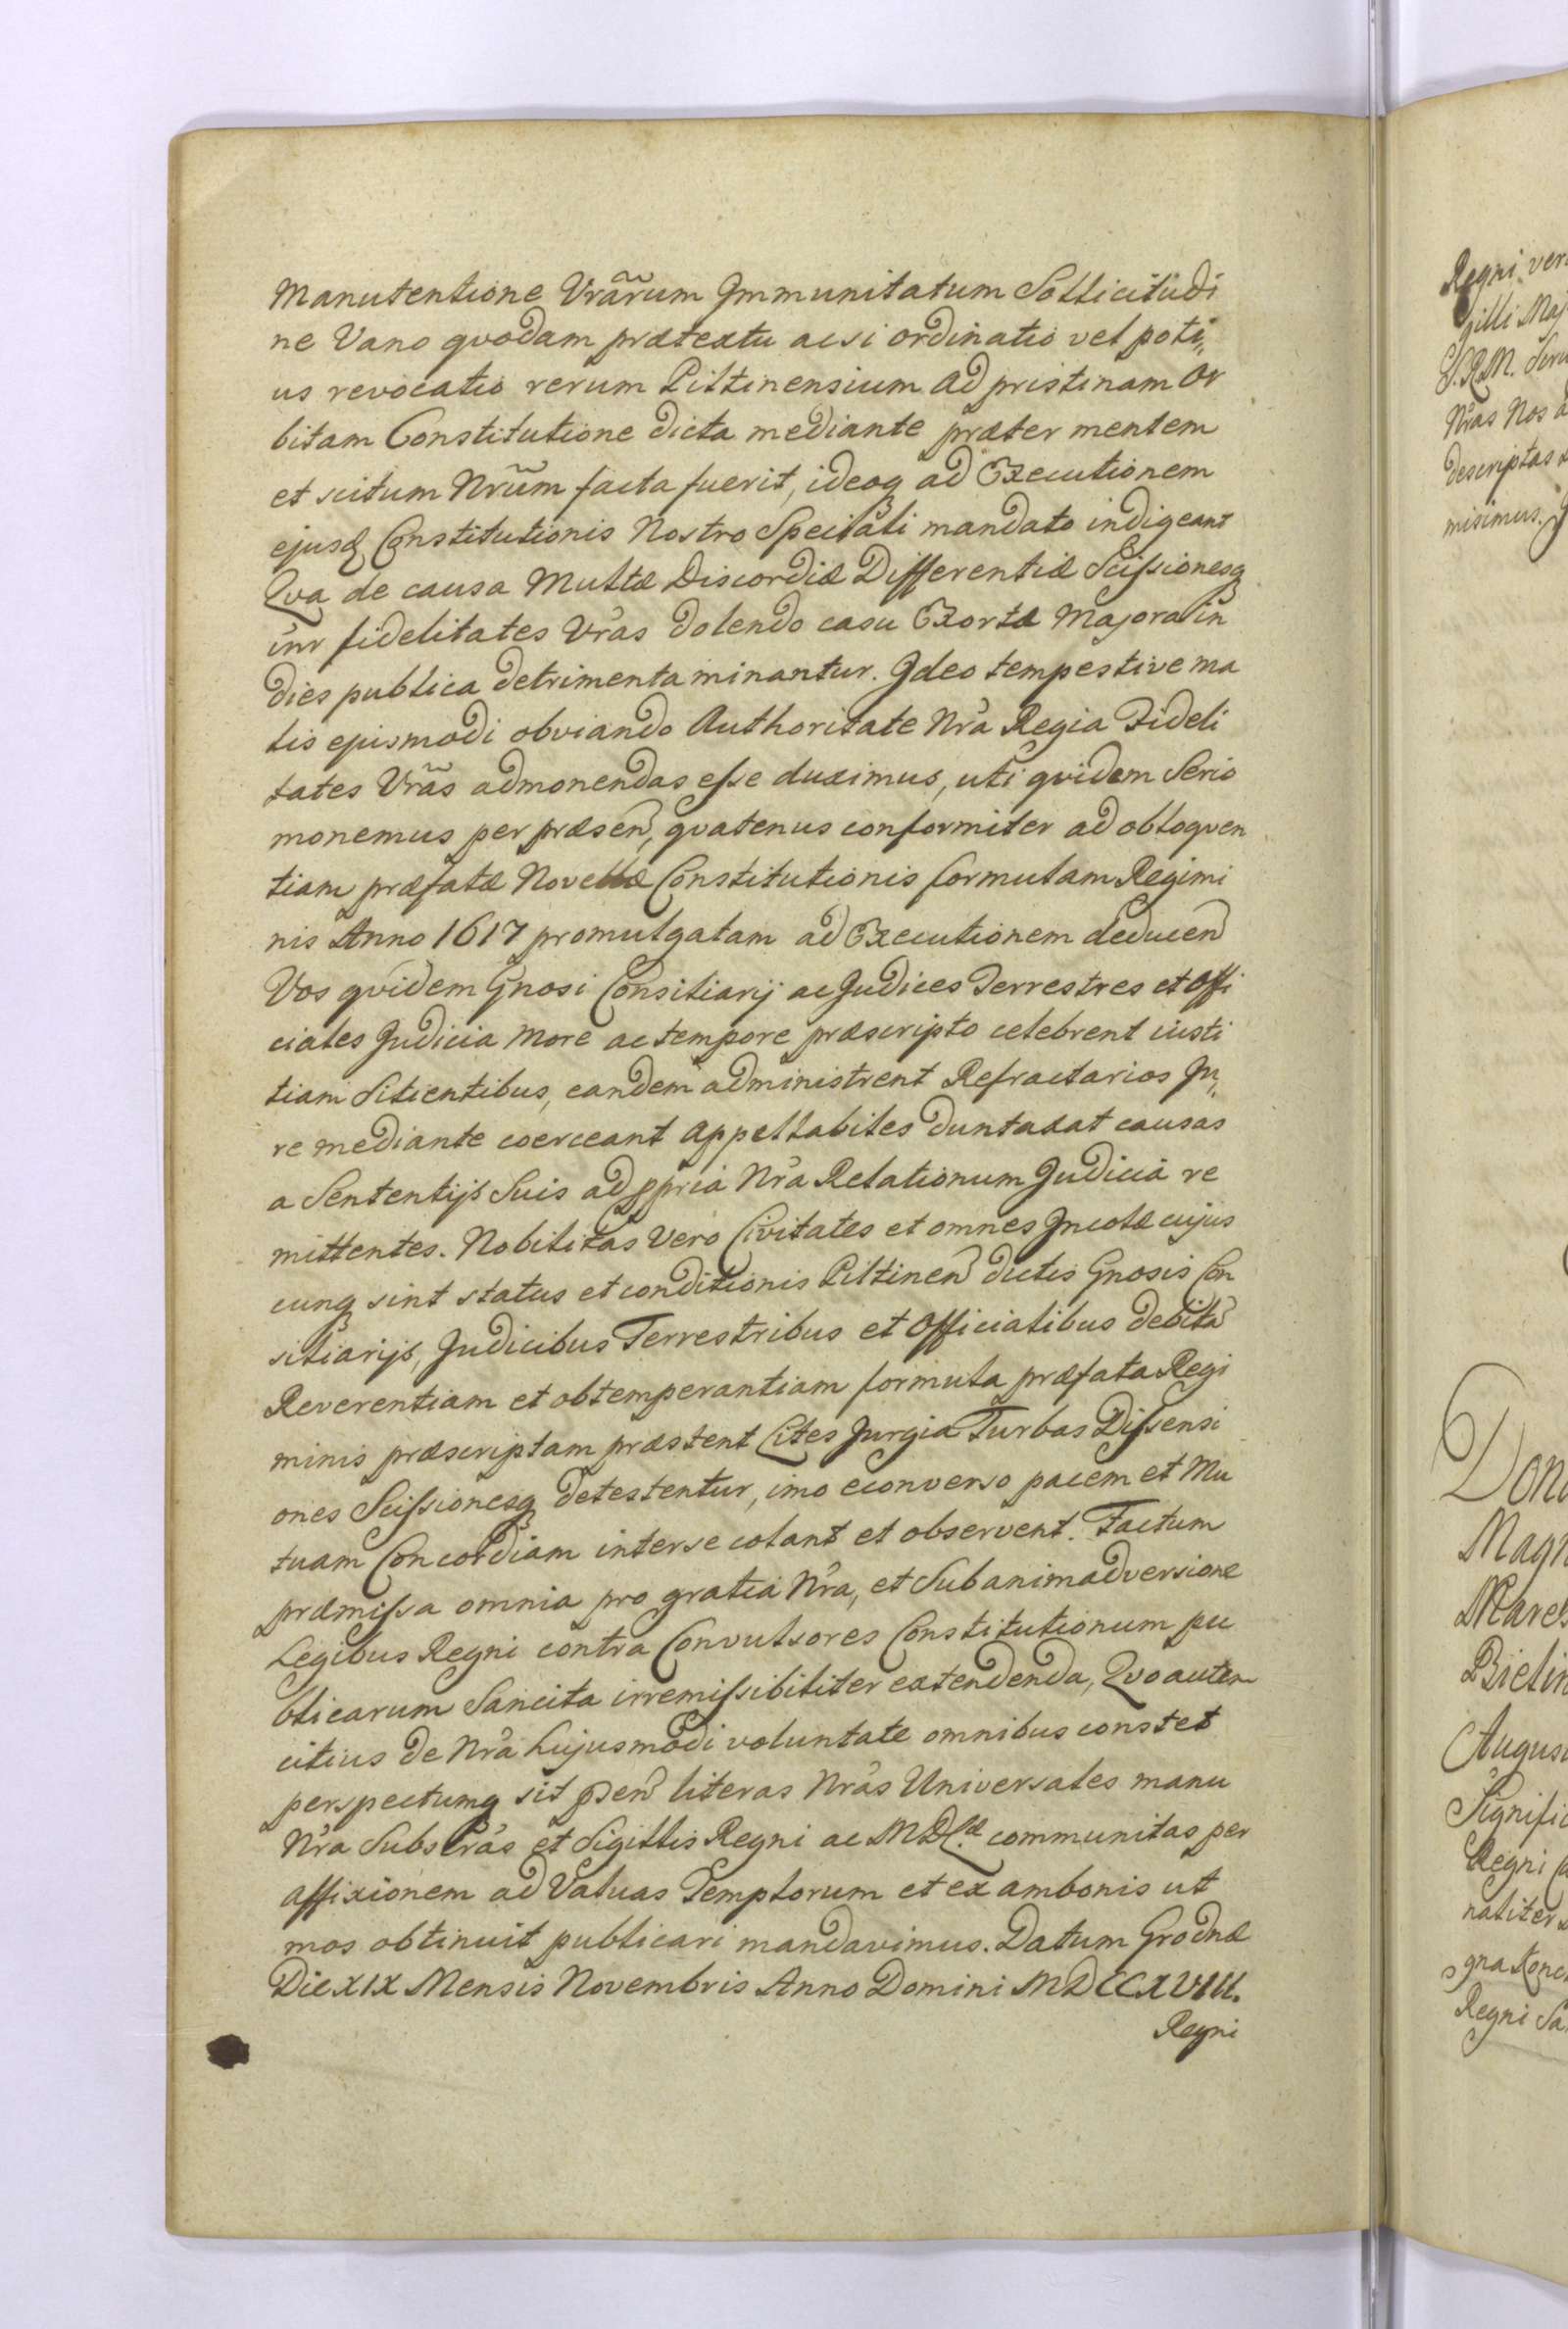 Manutentione Vrãrum Immunitatum Sollicitudi
ne Vano qvodam prætextu acsi ordinatio vel poti„
us revocatio rerum Piltinensium ad pristinam Or
bitam Constitutione dicta mediante præter mentem
et scitum Nrũm facta fuerit, ideoq ad Executionem
ejusq Constitutionis Nostro Speciali mandato indigeant
Qva de causa Multæ Discordiæ Differentiæ Scissionesq
inr fidelitates Vras dolendo casu Exortæ Majora in
dies publica detrimenta minantur. Ideo tempestive ma
lis ejusmodi obviando Authoritate Nra Regia Fideli
tates Vrãs admonendas esse duximus, uti qvidem Serio
monemus per præsen, qvatenus conformiter ad obloqven
tiam præfatæ Novellæ Constitutionis formulam Regimi
nis Anno 1617 promulgatam ad Executionem deducen
Vos qvidem Gnosi Consiliarij ac Judices Terrestres et Offi
ciales Judicia More ac tempore præscripto celebrent iusti
tiam Sitientibus, eandem administrent Refractarios Ju„
re mediante coerceant Appellabiles duntaxat causas
a Sententijs Suis ad ppria Nra Relationum Judicia re
mittentes. Nobilitas Vero Civitates et omnes Incolæ cujus
cunq sint status et conditionis Piltinen dictis Gnosis Con
siliarijs, Judicibus Terrestribus et Officialibus debita
Reverentiam et obtemperantiam formula præfata Regi
minis præscriptam præstent Lites Jurgia Turbas Dissensi
ones Scissionesq detestentur, imo econverso pacem et Mu
tuam Concordiam inter se colant et observent. Factum
præmissa omnia pro gratia Nra, et Sub animadversione
Legibus Regni contra Convulsores Constitutionum pu
blicarum Sancita irremissibiliter extendenda, Qvo autem
citius de Nra hujusmodi voluntate omnibus constet
perspectumq sit psen literas Nras Universales manu
Nra Subscras et Sigillis Regni ac MDLæ communitas per
affixionem ad Valuas Templorum et ex ambonis ut
mos obtinuit publicari mandavimus. Datum Grodnæ
Die XIX Mensis Novembris Anno Domini MDCCXVIII.
Regni
Regni ver
gilli Maj
S.R.M.
Nras Nos
descriptas
misimus.
Don
Magn
Mares
Bielin
Augus
Signific
Regni
naliter
gna
Regni Sa